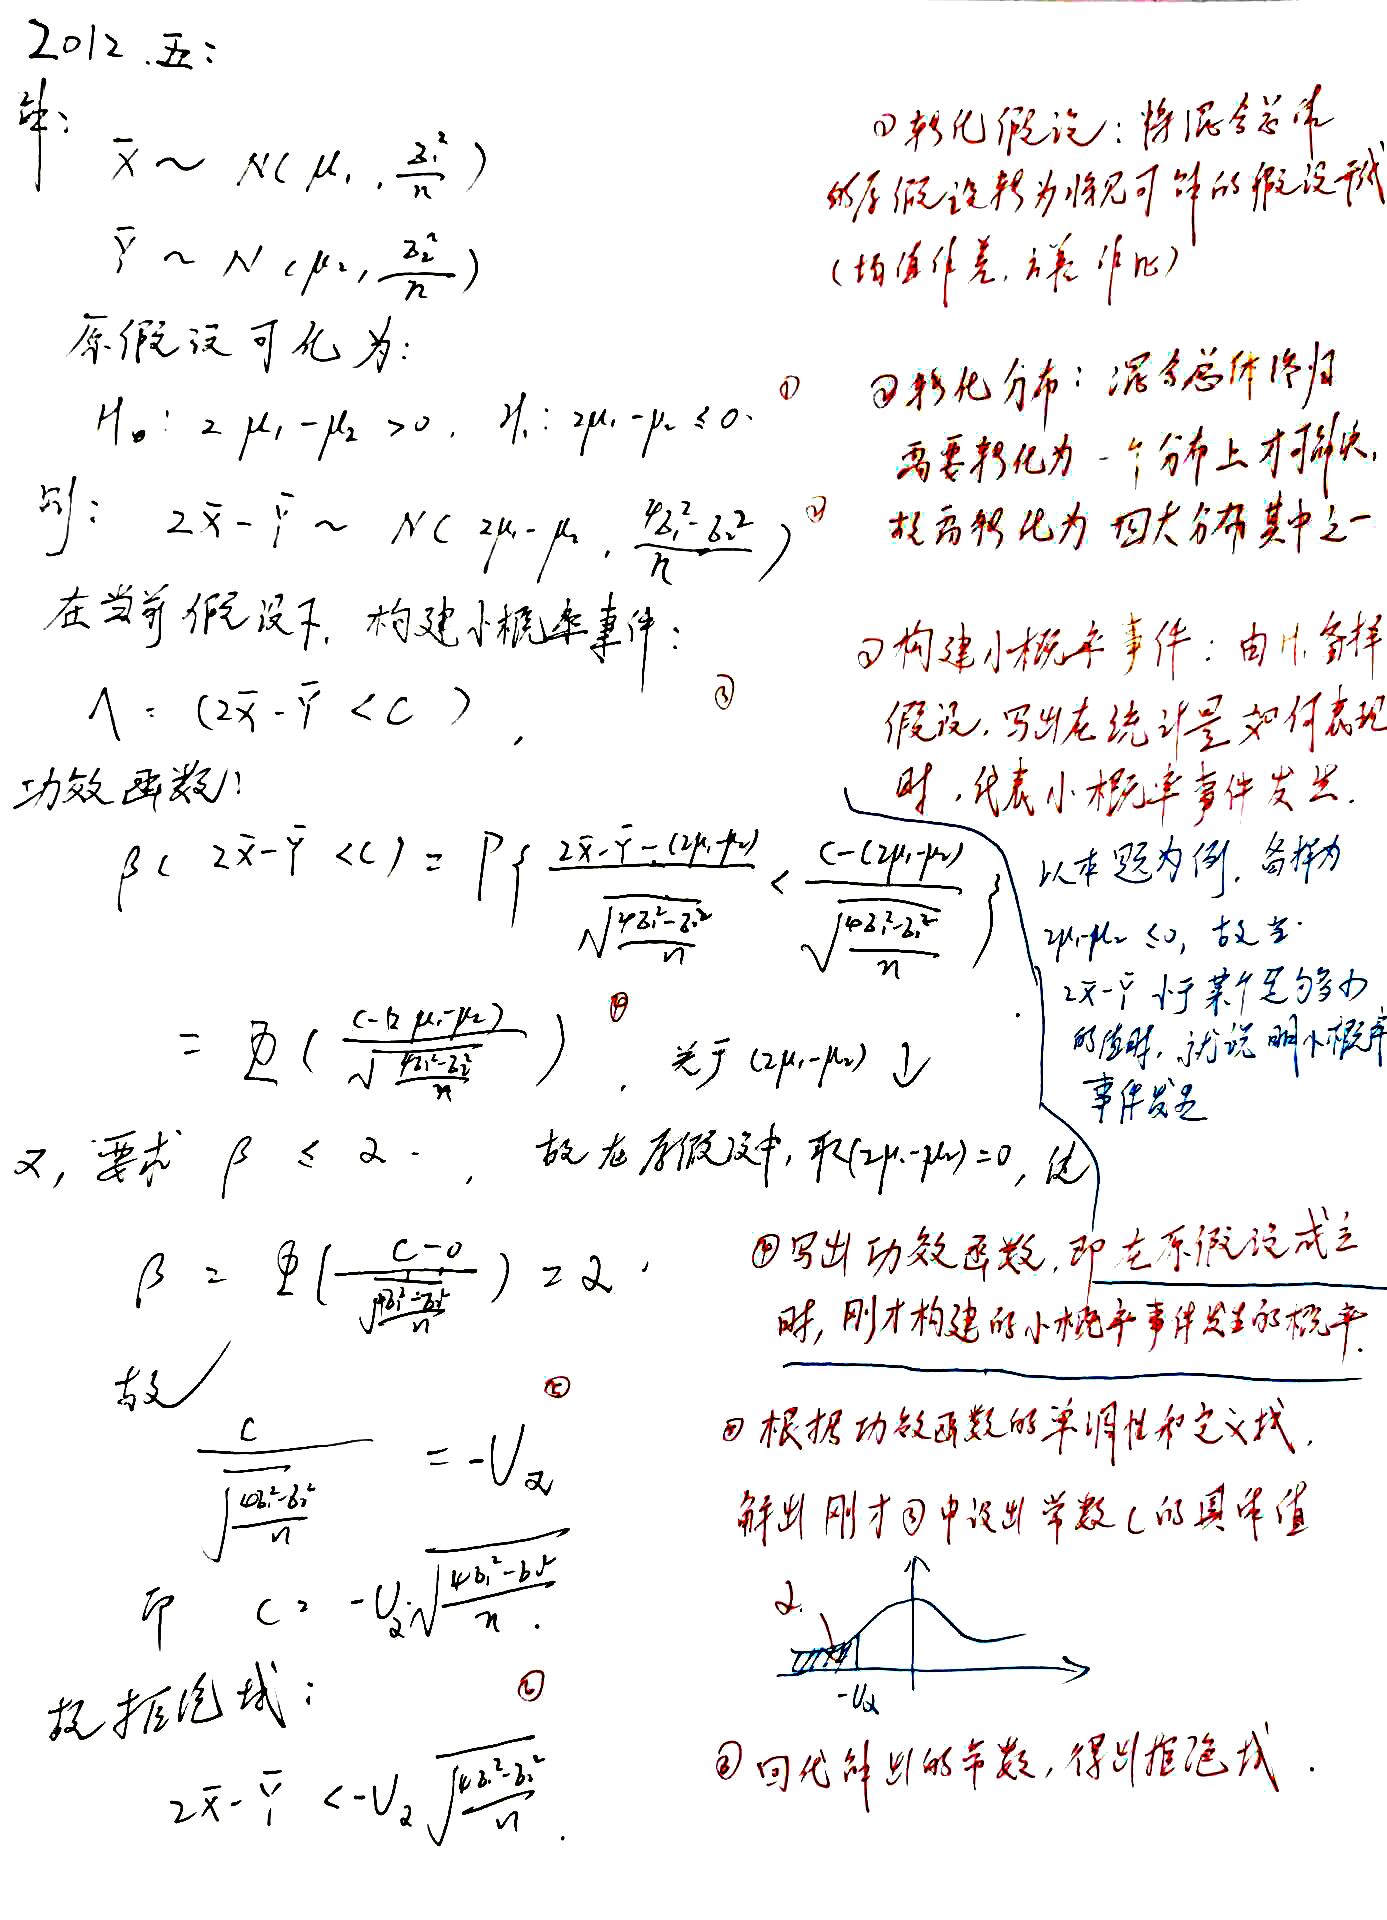 2012.五:
解:
X̄ ~ N(μ₁, σ₁²/n)
Ȳ ~ N(μ₂, σ₂²/n)
原假设可化为:
H₀: 2μ₁-μ₂>0. H₁: 2μ₁-μ₂≤0. ①
则: 2X̄-Ȳ ~ N(2μ₁-μ₂, (4σ₁²-σ₂²)/n) ②
在当前假设下, 构建小概率事件:
Λ = (2X̄-Ȳ<C), ③
功效函数:
β(2X̄-Ȳ<C) = P{ (2X̄-Ȳ-(2μ₁-μ₂))/√((4σ₁²-σ₂²)/n) < (C-(2μ₁-μ₂))/√((4σ₁²-σ₂²)/n) }
= Φ( (C-(2μ₁-μ₂))/√((4σ₁²-σ₂²)/n) ) ④, 关于(2μ₁-μ₂)↓
又, 要求 β ≤ α. , 故在原假设中, 取(2μ₁-μ₂)=0, 使
β = Φ( (C-0)/√((4σ₁²-σ₂²)/n) ) = α.
故
C/√((4σ₁²-σ₂²)/n) = -U_α ⑤
即 C = -U_α·√((4σ₁²-σ₂²)/n).
故拒绝域: ⑥
2X̄-Ȳ < -U_α √((4σ₁²-σ₂²)/n).
①转化假设: 将混合总体
的原假设转为常见可解的假设形式
(均值作差, 方差作比)
②转化分布: 混合总体终归
需要转化为一个分布上才可解决,
故需转化为四大分布其中之一
③构建小概率事件: 由H₁备择
假设, 写出在统计量如何表现
时, 代表小概率事件发生.
以本题为例, 备择为
2μ₁-μ₂≤0, 故当
2X̄-Ȳ小于某个足够小
的值时, 就说明小概率
事件发生
④写出功效函数, 即在原假设成立
时, 刚才构建的小概率事件发生的概率.
⑤根据功效函数的单调性和定义域,
解出刚才③中设出常数C的具体值
α.
-Uα
⑥回代解出的常数, 得出拒绝域.